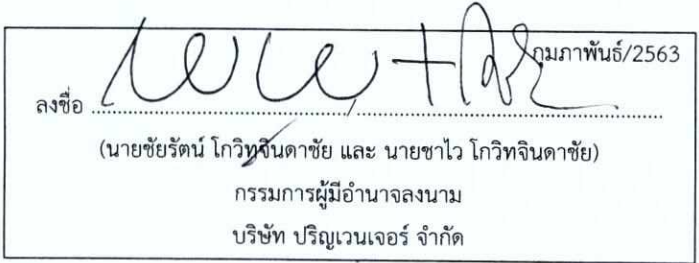 กุมภาพันธ์/2563
ลงชื่อ
(นายชัยรัตน์ โกวิทจินดาชัย และ นายชาไว โกวิทจินดาชัย)
กรรมการผู้มีอำนาจลงนาม
บริษัท ปริญเวนเจอร์ จำกัด